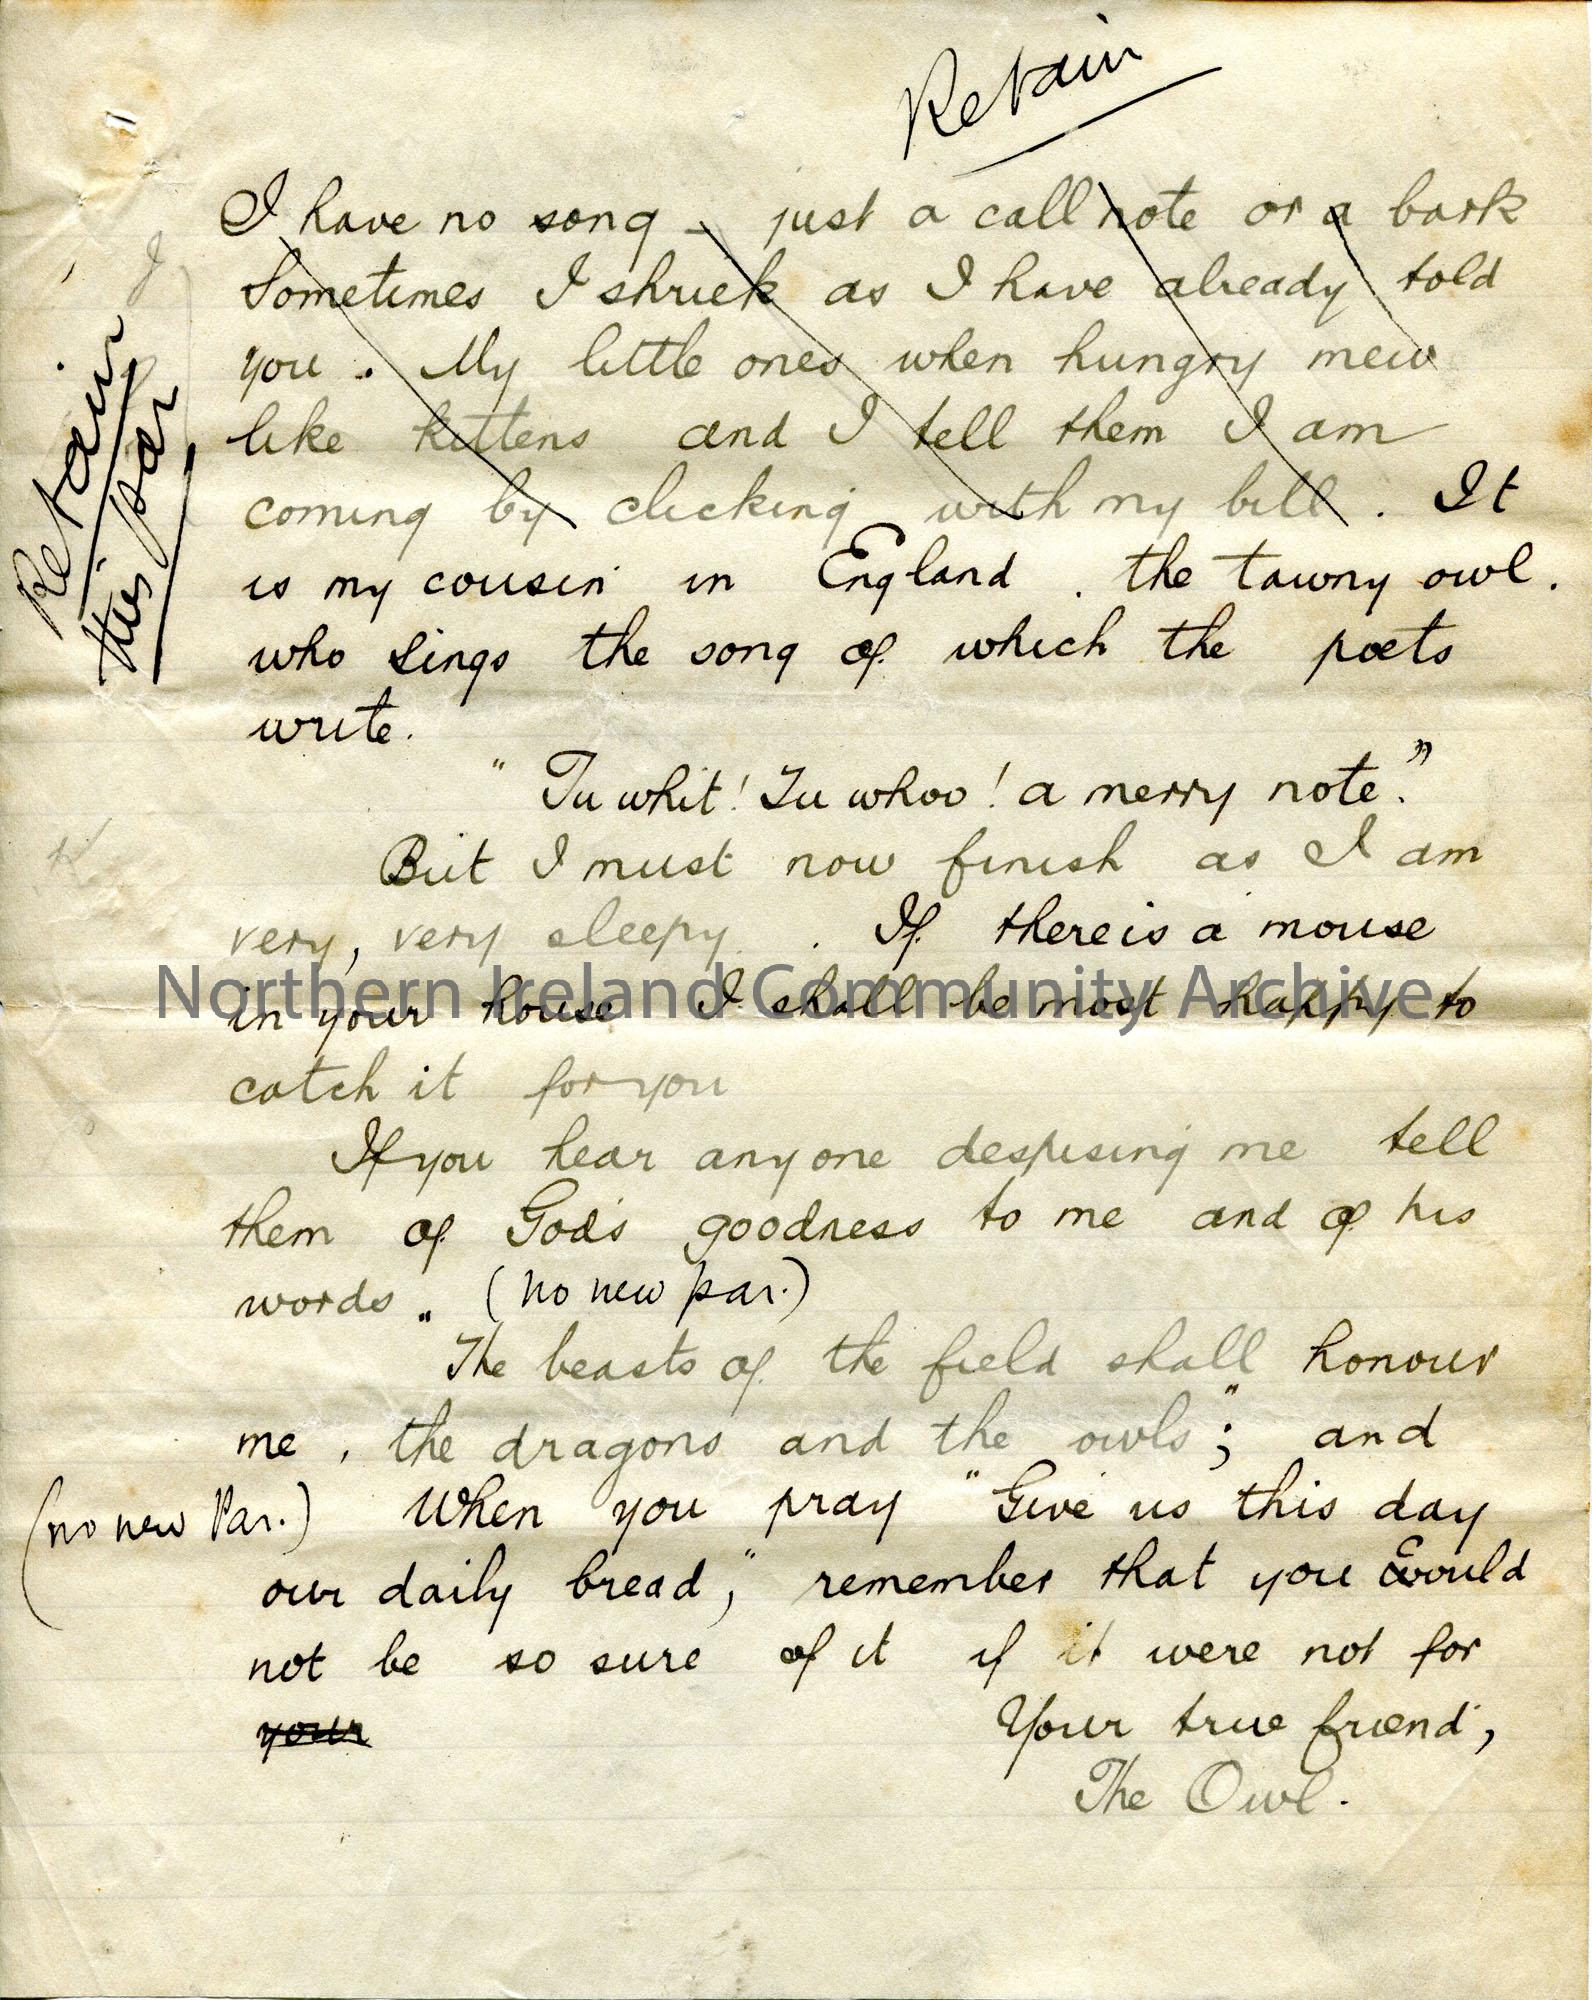 Retain
I have no song - just a call note or a bark
Sometimes I shriek as I have already told
you. My little ones when hungry mew
like kittens and I tell them I am
coming by clicking with my bill. It
is my cousin in England. the tawny owl.
who sings the song of which the poets
write.
Retain
this par
"Tu whit! Tu whoo! a merry note."
But I must now finish as I am
very, very sleepy. If there is a mouse
in your house I shall be most happy to
Northern Ireland Community Archive
catch it for you
If you hear anyone despising me tell
them of God's goodness to me and of his
words " (no new par.)
The beasts of the field shall honour
me, the dragons and the owls"; and
(no new Par.) When you pray "Give us this day
our daily bread," remember that you would
not be so sure of it if it were not for
your Your true friend,
The Owl.